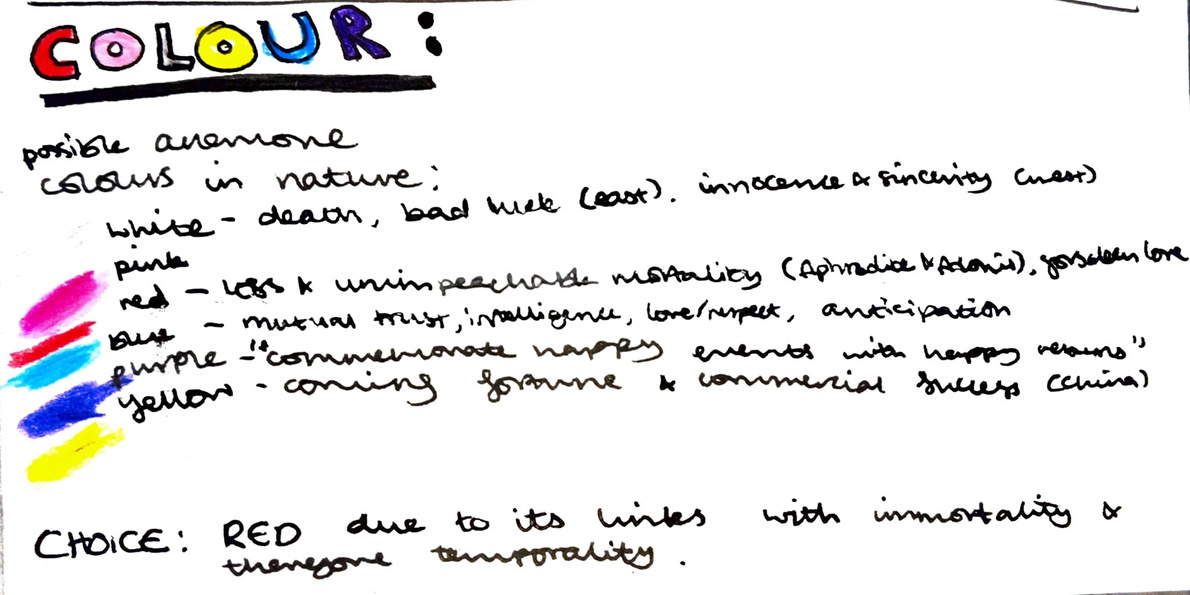 COLOUR:
possible anemone
colours in nature:
white - death, bad luck (east). innocence & sincerity (west)
pink
red - loss & unimpeachable mortality (Aphrodite & Adonis), forsaken love
blue - mutual trust, intelligence, love/respect, anticipation
purple - "commemorate happy events with happy returns"
yellow - coming fortune & commercial success (China)
CHOICE: RED due to its links with immortality &
therefore temporality.